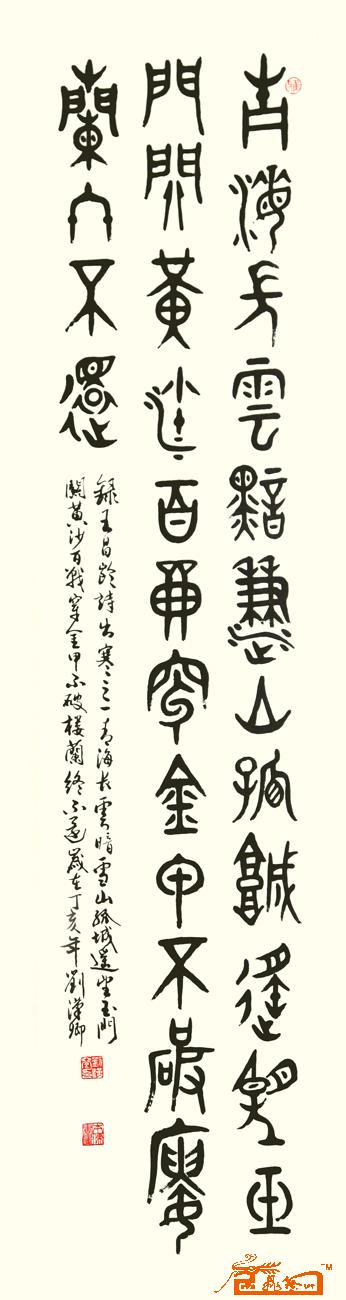 青海長雲黯雪山孤城遙望玉
門關黃沙百戰穿金甲不破樓
蘭終不還
錄王昌齡詩出塞之一青海長雲暗雪山孤城遙望玉門
關黃沙百戰穿金甲不破樓蘭終不還歲在丁亥年劉漢卿